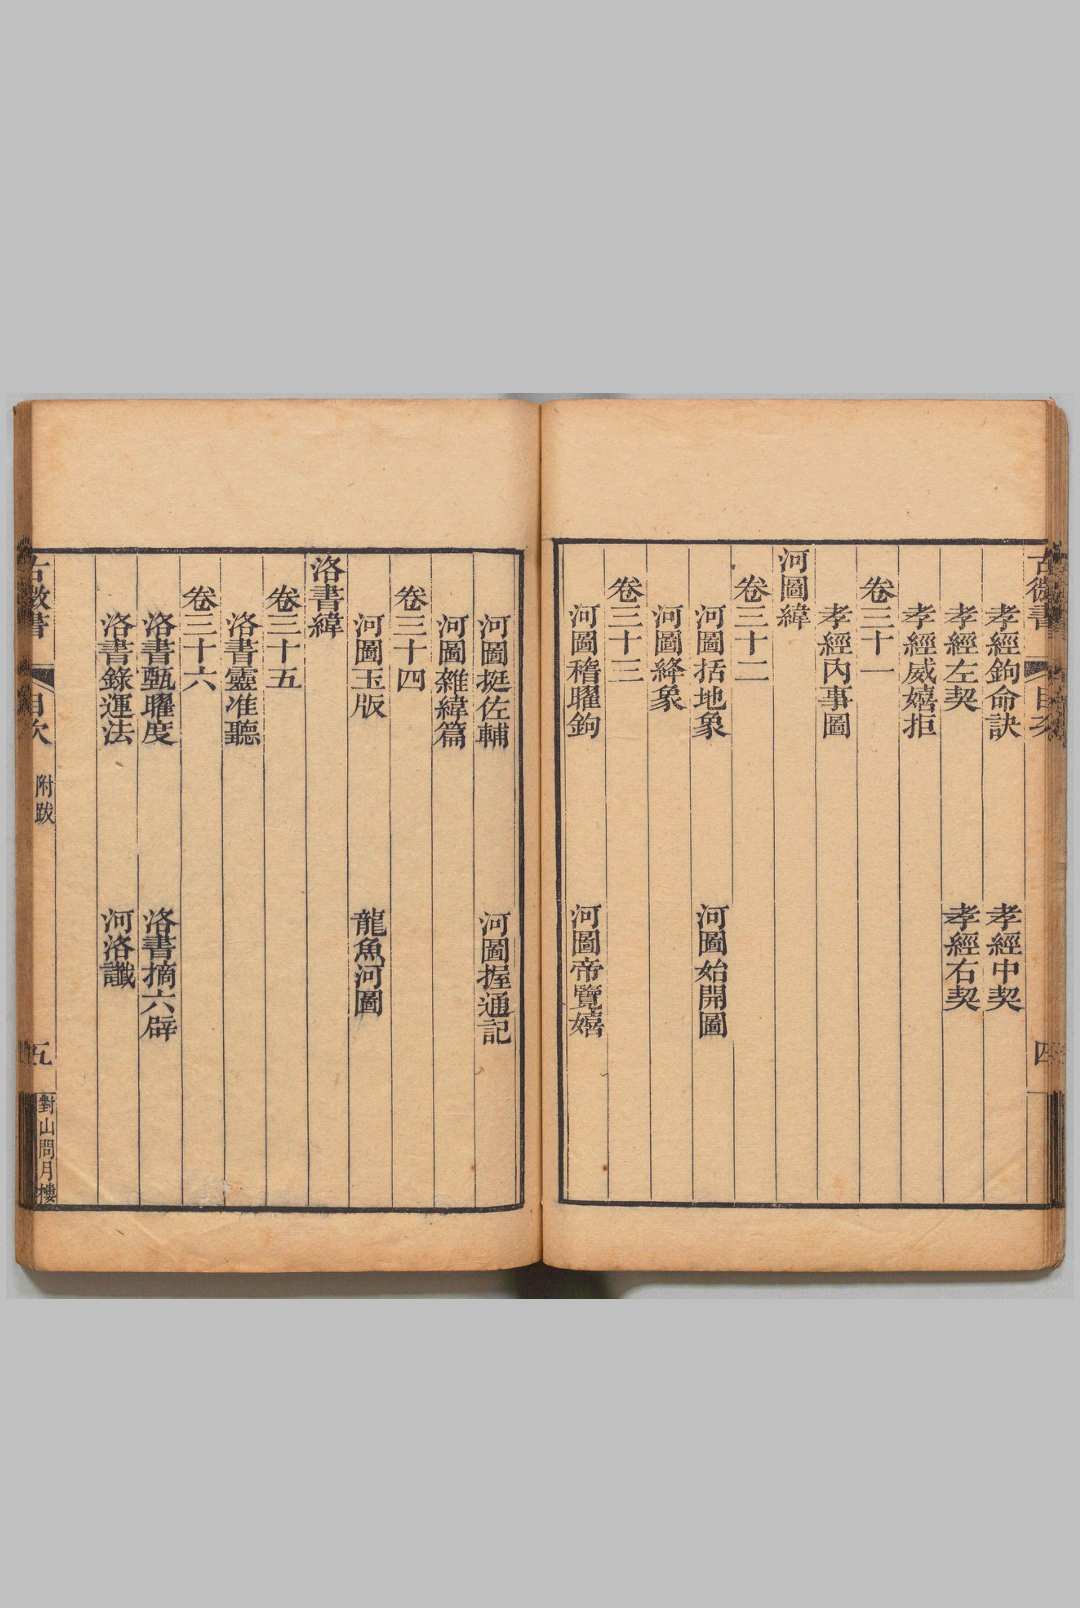 古微書
目次
四
孝經鉤命訣 孝經中契
孝經左契 孝經右契
孝經威嬉拒
卷三十一
孝經內事圖
河圖緯
卷三十二
河圖括地象 河圖始開圖
河圖絳象
卷三十三
河圖稽曜鉤 河圖帝覽嬉
河圖挺佐輔 河圖握通記
河圖雜緯篇
卷三十四
河圖玉版 龍魚河圖
洛書緯
卷三十五
洛書靈准聽
卷三十六
洛書甄曜度 洛書摘六辟
洛書錄運法 河洛讖
古微書
目次
附跋
五
對山問月樓